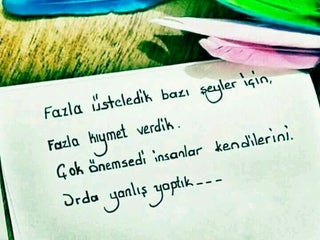 Fazla üsteledik bazı şeyler için,
Fazla kıymet verdik.
Çok önemsedi insanlar kendilerini.
Orda yanlış yaptık---